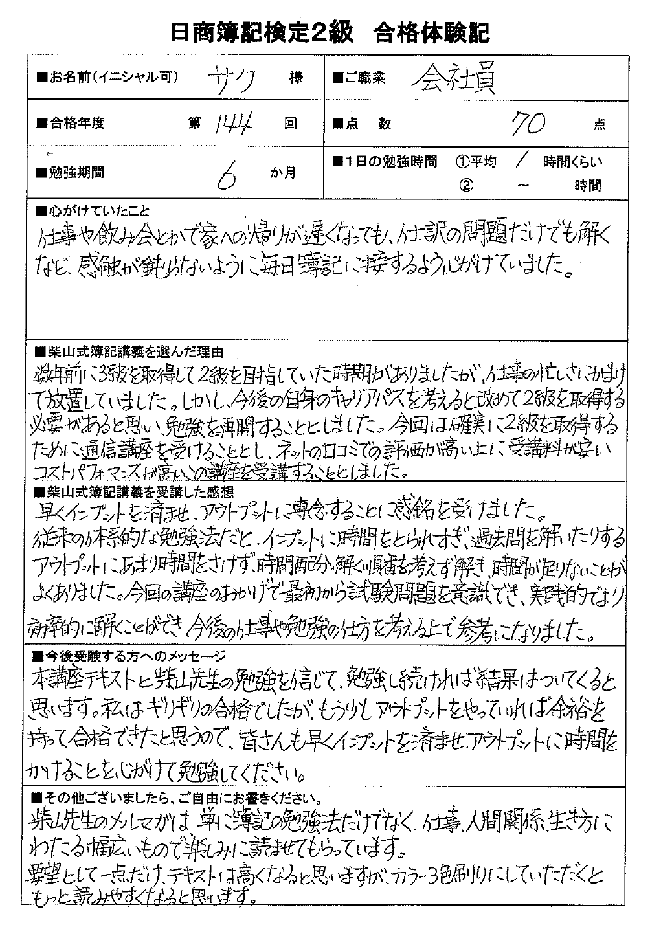 日商簿記検定2級 合格体験記
■お名前(イニシャル可) サク 様 ■ご職業 会社員
■合格年度 第 144 回 ■点 数 70 点
■勉強期間 6 か月 ■1日の勉強時間 ①平均 1 時間くらい
② ～ 時間
■心がけていたこと
仕事や飲み会とかで家への帰りが遅くなっても、仕訳の問題だけでも解く
など、感触が鈍らないように毎日簿記に接するよう心がけていました。
■柴山式簿記講義を選んだ理由
数年前に3級を取得して2級を目指していた時期がありましたが、仕事の忙しさにかまけ
て放置していました。しかし、今後の自身のキャリアパスを考えると改めて2級を取得する
必要があると思い、勉強を再開することとしました。今回は確実に2級を取得する
ために通信講座を受けることとし、ネットの口コミでの評価が高い上に受講料が安い
コストパフォーマンスが高いこの講座を受講することとしました。
■柴山式簿記講義を受講した感想
早くインプットを済ませ、アウトプットに専念することに感銘を受けました。
従来の体系的な勉強法だと、インプットに時間をとられすぎ、過去問を解いたりする
アウトプットにあまり時間をさけず、時間配分、解く順番を考えず解き、時間が足りないことが
よくありました。今回の講座のおかげで最初から試験問題を意識でき、実践的でより
効率的に解くことができ今後の仕事や勉強の仕方を考える上で参考になりました。
■今後受験する方へのメッセージ
本講座テキストと柴山先生の勉強を信じて、勉強し続ければ結果はついてくると
思います。私はギリギリの合格でしたが、もう少しアウトプットをやっていれば余裕を
持って合格できたと思うので、皆さんも早くインプットを済ませ、アウトプットに時間を
かけることを心がけて勉強してください。
■その他ございましたら、ご自由にお書きください。
柴山先生のメルマガは単に簿記の勉強法だけでなく、仕事、人間関係、生き方に
わたる幅広いもので楽しみに読ませてもらっています。
要望として一点だけ、テキストは高くなると思いますが、カラー3色刷りにしていただくと
もっと読みやすくなると思います。